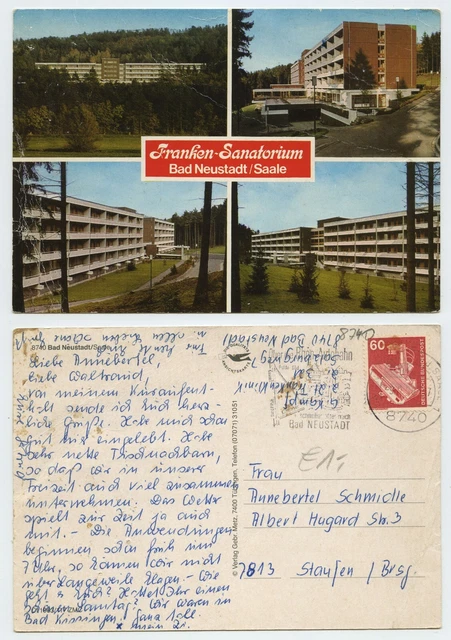 Franken-Sanatorium
Bad Neustadt/Saale
8740 Bad Neustadt/Saale
Liebe Annebertel,
liebe Waltraud,
von meinem Kuraufent-
halt sende ich Euch herz-
liche Grüße. Habe mich schon
gut eingelebt. Habe
sehr nette Tischnachbarn,
so daß wir in unserer
Freizeit auch viel zusammen
unternehmen. Das Wetter
spielt zur Zeit ja auch
mit. - Die Anwendungen
beginnen schon früh um
7 Uhr, so können wir nicht
über Langeweile klagen. - Wie
geht's Euch? Hattet Ihr einen
schönen Samstag? Wir waren in
Bad Kissingen. Ganz toll.
© Verlag Gebr. Metz, 7400 Tübingen, Telefon (07071) 31051
8740 Bad Neustadt
Salzburgweg 7
Bad NEUSTADT
8740
60
DEUTSCHE BUNDESPOST
E1,-
Frau
Annebertel Schmidle
Albert Hugard Str. 3
7813 Staufen / Brsg.